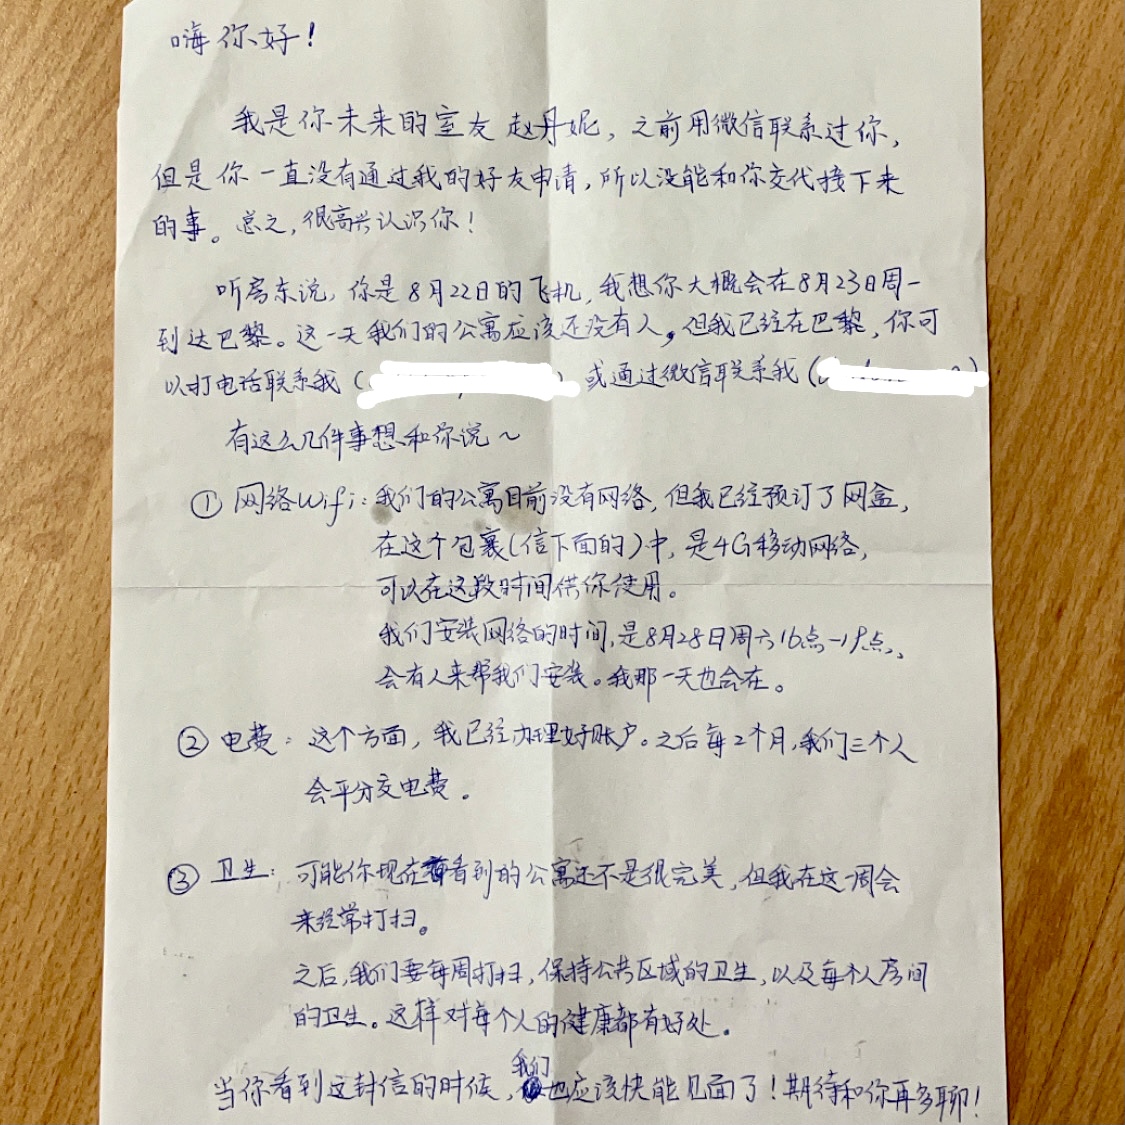 嗨你好！
我是你未来的室友赵丹妮，之前用微信联系过你，
但是你一直没有通过我的好友申请，所以没能和你交代接下来
的事。总之，很高兴认识你！
听房东说，你是8月22日的飞机，我想你大概会在8月23日周一
到达巴黎。这一天我们的公寓应该还没有人，但我已经在巴黎，你可
以打电话联系我（ ）或通过微信联系我（ ）
有这么几件事想和你说～
① 网络Wifi：我们的公寓目前没有网络，但我已经预订了网盒，
在这个包裹（信下面的）中，是4G移动网络，
可以在这段时间供你使用。
我们安装网络的时间，是8月28日周六16点-19点，
会有人来帮我们安装。我那一天也会在。
② 电费：这个方面，我已经办理好账户。之后每2个月，我们三个人
会平分交电费。
③ 卫生：可能你现在看到的公寓还不是很完美，但我在这一周会
来经常打扫。
之后，我们要每周打扫，保持公共区域的卫生，以及每个人房间
的卫生。这样对每个人的健康都有好处。
当你看到这封信的时候，我们也应该快能见面了！期待和你再多聊！